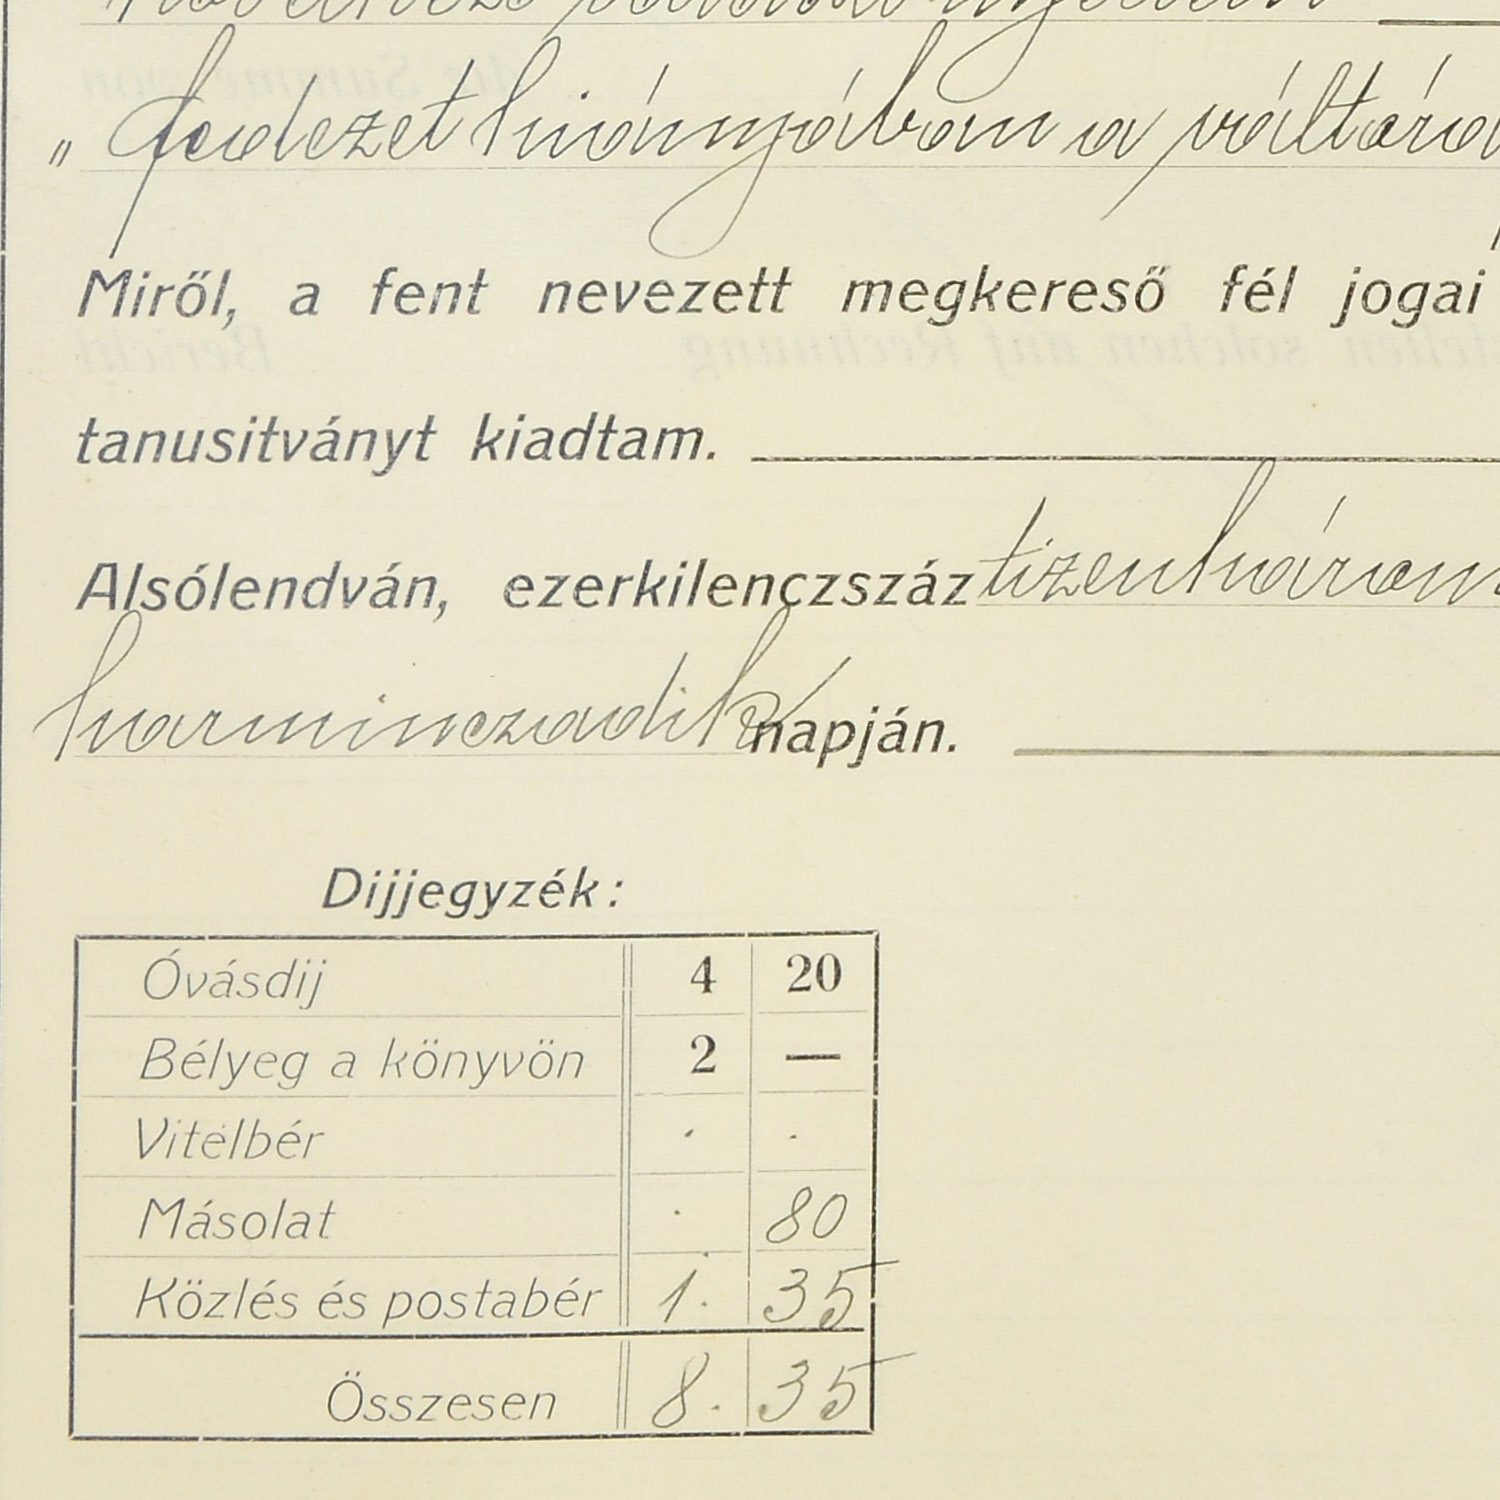 „ fedezet hiányában a váltóra
Miről, a fent nevezett megkereső fél jogai
tanusitványt kiadtam.
Alsólendván, ezerkilenczszáz tizenhárom
harminczadik napján.
Dijjegyzék:
Óvásdij 4 20
Bélyeg a könyvön 2 —
Vitelbér . .
Másolat . 80
Közlés és postabér 1. 35
Összesen 8. 35